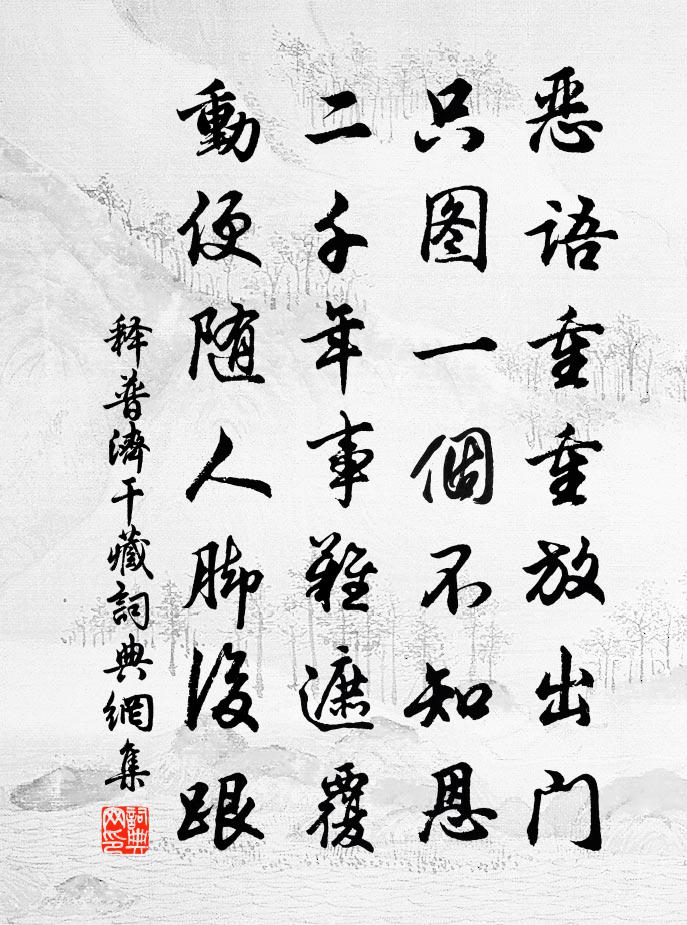 恶语重重放出门
只图一個不知恩
二千年事難遮覆
動便随人脚後跟
释普濟干藏詞典網集
詞典网印